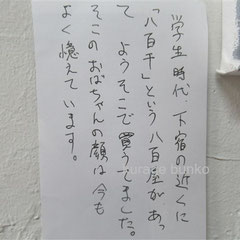 学生時代、下宿の近くに
「八百千」という八百屋があっ
て ようそこで買うてました。
そこのおばちゃんの顔は今も
よく憶えています。